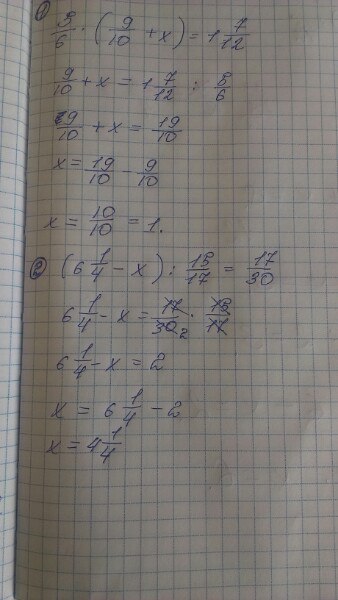 1
5/6 · (9/10 + x) = 1 7/12
9/10 + x = 1 7/12 : 5/6
9/10 + x = 19/10
x = 19/10 - 9/10
x = 10/10 = 1.
2 (6 1/4 - x) : 15/17 = 17/30
6 1/4 - x = 17/30 2 · 15/17
6 1/4 - x = 2
x = 6 1/4 - 2
x = 4 1/4